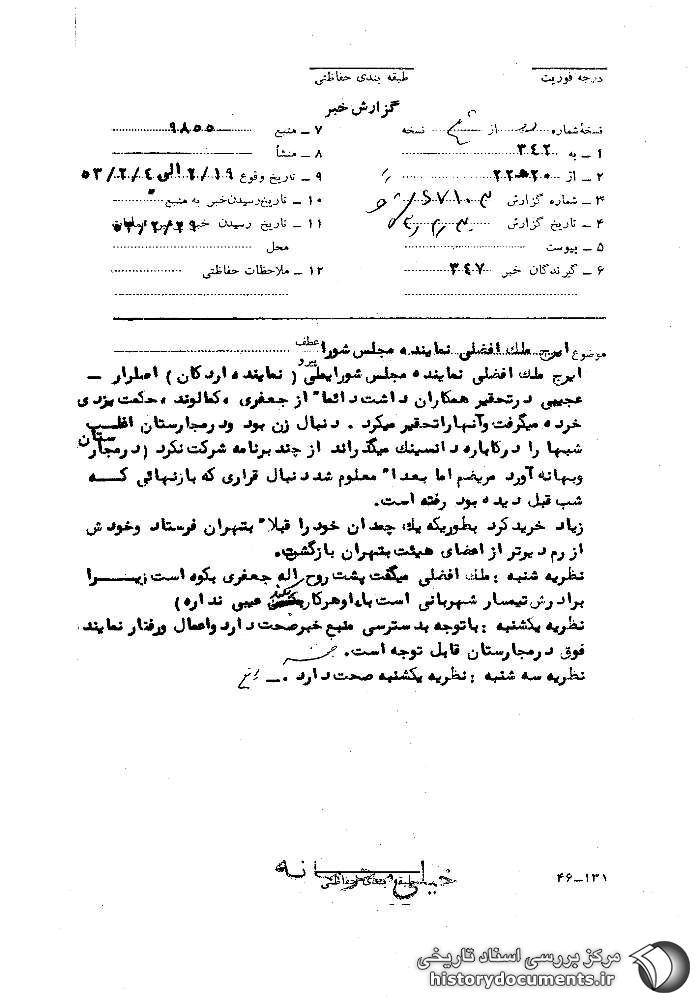 درجه فوریت
طبقه بندی حفاظتی
گزارش خبر
نسخهٔ شماره از نسخه
۱ – به ۳۴۲
۲ – از ۲۰ ه ۲۲
۳ – شماره گزارش
۴ – تاریخ گزارش
۵ – پیوست
۶ – گیرندگان خبر ۳۴۷
۷ – منبع ۹۸۵۵
۸ – منشأ
۹ – تاریخ وقوع ۲/۱۹ الی ۵۳/۲/۴
۱۰ – تاریخ رسیدن خبر به منبع
۱۱ – تاریخ رسیدن خبر
محل
۱۲ – ملاحظات حفاظتی
موضوع ایرج ملك افضلی نماینده مجلس شورا
عطف
پیرو
ایرج ملك افضلی نماینده مجلس شورایملی ( نماینده اردکان ) اصرار –
عجیبی درتحقیر همکاران داشت دائما" از جعفری ، کمالوند ، حکمت یزدی
خرده میگرفت وآنهاراتحقیر میکرد . دنبال زن بود ودرمجارستان اغلب
شبها را درکاباره دانسینگ میگذراند از چند برنامه شرکت نکرد ( درمجارستان
وبهانه آورد مریضم اما بعدا" معلوم شد دنبال قراری که بازنهائی کـــه
شب قبل دیده بود رفته است.
زیاد خرید کرد بطوریکه یك چمدان خود را قبلا" بتهران فرستاد وخودش
از رم دیرتر از اعضای هیئت بتهران بازگشت.
نظریه شنبه : ملك افضلی میگفت پشت روح اله جعفری بکوه است زیـــرا
برادرش تیمسار شهربانی است با اوهرکار بکند عیبی نداره )
نظریه یکشنبه : باتوجه بدسترسی منبع خبرصحت دارد واعمال ورفتار نماینده
فوق درمجارستان قابل توجه است.
نظریه سه شنبه : نظریه یکشنبه صحت دارد .–
خیلی محرمانه
طبقه بندی حفاظتی
۴۶–۱۳۱
مرکز بررسی اسناد تاریخی
historydocuments.ir